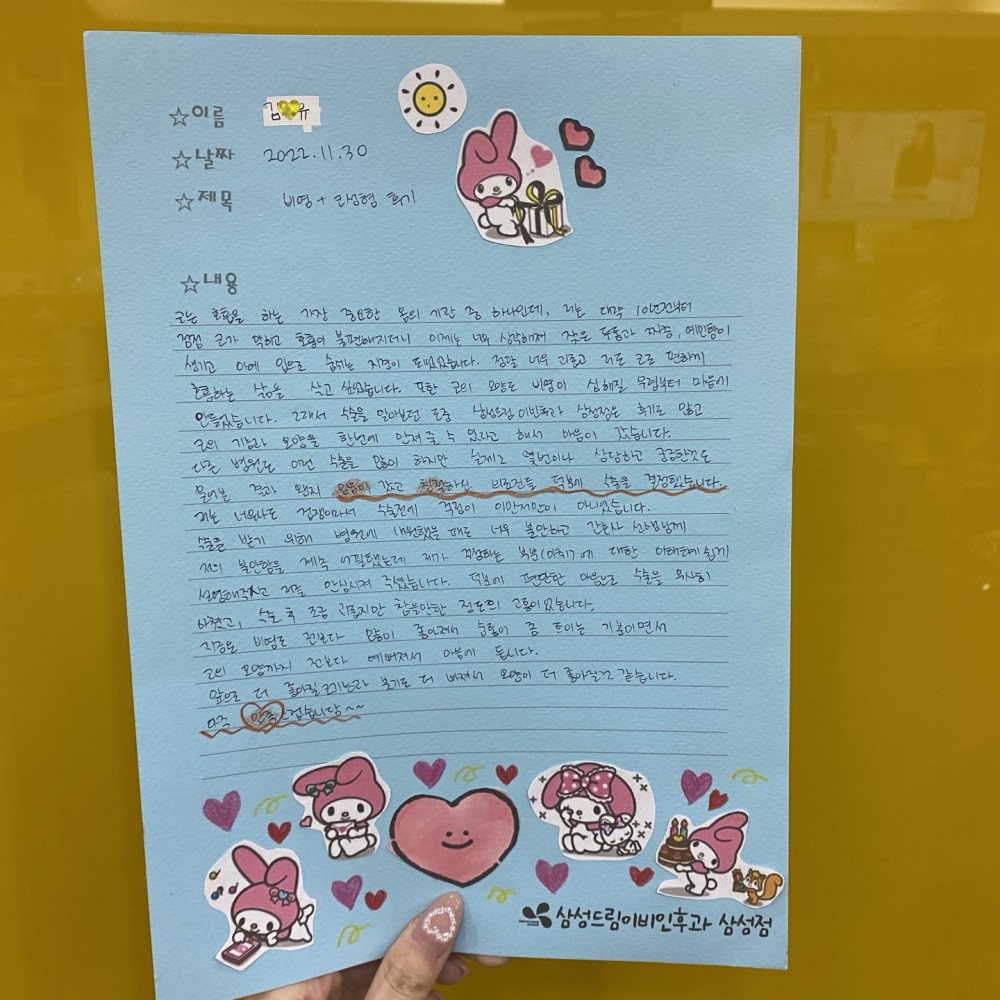 ☆이름 김💛유
☆날짜 2022.11.30
☆제목 비염 + 코성형 후기
☆내용
코는 호흡을 하는 가장 중요한 몸의 기관 중 하나인데, 저는 대략 10년전부터
점점 코가 막히고 호흡이 불편해지더니 이제는 너무 심각해져 잦은 두통과 짜증, 예민함이
생기고 아예 입으로 숨쉬는 지경이 되었었습니다. 정말 너무 괴롭고 저도 코로 편하게
호흡하는 삶을 살고 싶었습니다. 또한 코의 모양도 비염이 심해질 무렵부터 마음에
안들었습니다. 그래서 수술을 알아보던 도중 삼성드림이비인후과 삼성점은 후기도 많고
코의 기능과 모양을 한번에 안겨 줄 수 있다고 해서 마음이 갔습니다.
다른 병원도 이런 수술을 많이 하지만 실제로 몇번이나 상담하고 궁금한것도
물어본 결과 왠지 믿음이 갔고 친절하신 의료진들 덕분에 수술을 결정했습니다.
저는 너무나도 겁쟁이라서 수술전에 걱정이 이만저만이 아니었습니다.
수술을 받기 위해 병원에 내원했을 때도 너무 불안하고 간호사 선생님께
저의 불안함을 계속 어필했는데 제가 걱정하는 부분(마취)에 대한 이해하기 쉽게
설명해주시고 저를 안심시켜 주셨습니다. 덕분에 편안한 마음으로 수술을 무사히
마쳤고, 수술 후 조금 괴롭지만 참을만한 정도의 고통이었습니다.
지금은 비염도 전보다 많이 좋아져서 숨통이 좀 트이는 기분이면서
코의 모양까지 전보다 예뻐져서 마음에 듭니다.
앞으로 더 좋아질 코기능과 붓기도 더 빠져서 모양이 더 좋아질것 같습니다.
아주 만족스럽습니당~~
삼성드림이비인후과 삼성점